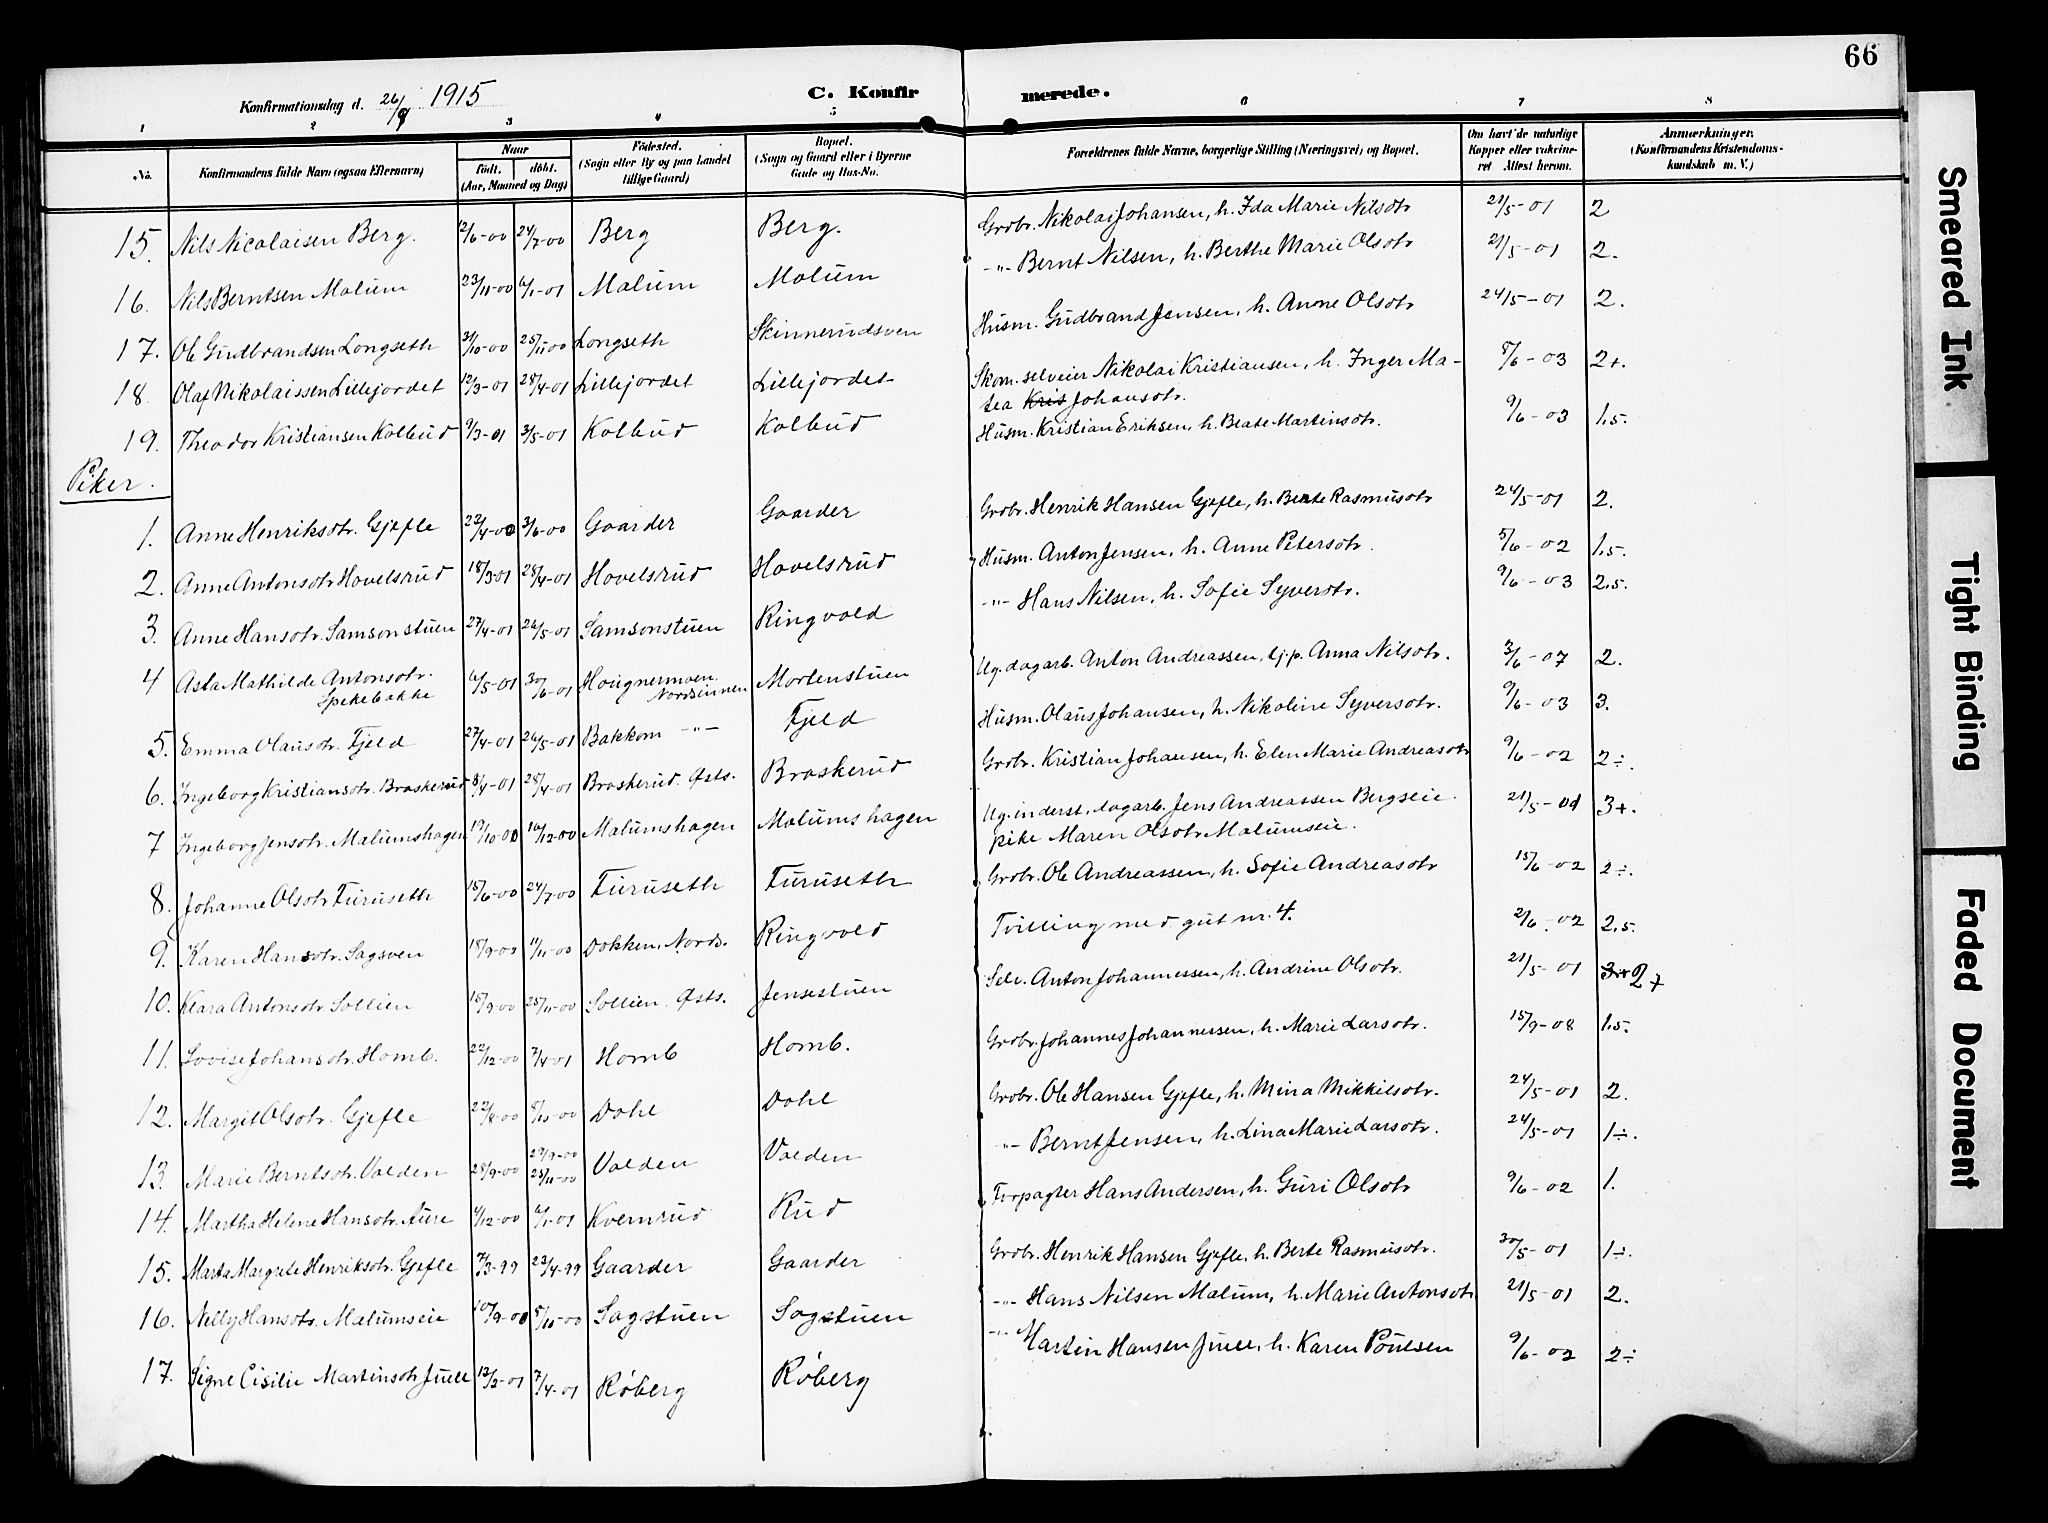 66
Konfirmationsdag d. 26/9 1915 C. Konfirmerede.
1 2 3 4 5 6 7 8
No. Konfirmandens fulde Navn (ogsaa Efternavn) Naar født. døbt. (Aar, Maaned og Dag) Fødested. (Sogn eller By og paa Landet tillige Gaard) Bopæl. (Sogn og Gaard eller i Byerne Gade og Hus-No. Forældrenes fulde Navne, borgerlige Stilling (Næringsvei) og Bopæl. Om havt de naturlige Kopper eller vakcineret Attest herom. Anmærkninger. (Konfirmandens Kristendomskundskab m. V.)
15. Nils Nicolaisen Berg. 12/6-00 24/7-00 Berg Berg. Grdbr. Nikolai Johansen, h. Ida Marie Nilsdtr 21/5-01 2
16. Nils Berntsen Malum 23/11-00 6/1-01 Malum Malum -"- Bernt Nilsen, h. Berthe Marie Olsdtr 21/5-01 2.
17. Ole Gudbrandsen Longseth 31/10-00 25/11-00 Longseth Skinnerudsven Husm. Gudbrand Jensen, h. Anne Olsdtr 24/5-01 2.
18. Olaf Nikolaissen Lillejordet 12/3-01 28/4-01 Lillejordet Lillejordet Skom. selveier Nikolai Kristiansen, h. Inger Ma-
tea Kris Johansdtr. 8/6-03 2+.
19. Theodor Kristiansen Kolbud 9/3-01 3/5-01 Kolbud Kolbud Husm. Kristian Eriksen, h. Beate Martinsdtr. 9/6-03 1,5.
Piker.
1. Anne Henriksdtr. Gjefle 22/4-00 3/6-00 Gaarder Gaarder Grdbr. Henrik Hansen Gjefle, h. Berte Rasmusdtr 24/5-01 2.
2. Anne Antonsdtr Hovelsrud 18/3-01 28/4-01 Hovelsrud Hovelsrud Husm. Anton Jensen, h. Anne Petersdtr. 5/6-02 1,5.
3. Anne Hansdtr. Samsonstuen 27/4-01 26/5-01 Samsonstuen Ringvold -"- Hans Nilsen, h. Sofie Syversdtr. 9/6-03 2,5.
4 Asta Mathilde Antonsdtr.
Spikebakke 6/5-01 30/6-01 Hougnermoen
Nordsinnen Mortenstuen Ug. dagarb. Anton Andreassen, tj.p. Anna Nilsdtr. 3/6-07 2.
5. Emma Olausdtr. Fjeld 27/4-01 26/5-01 Bakkom -"- Fjeld Husm. Olaus Johansen, h. Nikoline Syversdtr. 9/6-03 3.
6. Ingeborg Kristiansdtr. Braskerud 8/4-01 28/4-01 Braskerud. Østs. Braskerud Grdbr. Kristian Johansen, h. Elen Marie Andreasdtr 9/6-02 2÷.
7 Ingeborg Jensdtr. Malumshagen 19/10-00 16/12-00 Malumshagen Malumshagen Ug. inderst, dagarb. Jens Andreassen Bergseie.
pike Maren Olsdtr. Malumseie. 21/5-01 3+.
8. Johanne Olsdtr Furuseth 15/6-00 24/7-00 Furuseth Furuseth Grdbr. Ole Andreassen, h. Sofie Andreasdtr 15/6-02 2÷.
9. Karen Hansdtr. Sagsven 18/9-00 11/11-00 Dokken, Nords. Ringvold Tvilling med gut nr. 4. 2/6-02 2,5.
10. Klara Antonsdtr Sollien 15/9-00 25/11-00 Sollien. Østs. Jensestuen Selv. Anton Johannessen, h. Andrine Olsdtr. 21/5-01 2+
11. Lovise Johansdtr. Homb. 22/12-00 7/4-01 Homb Homb. Grdbr. Johannes Johannessen, h. Marie Larsdtr. 15/9-08 1,5.
12. Margit Olsdtr. Gjefle 22/8-00 8/10-00 Dahl Dahl Grdbr. Ole Hansen Gjefle, h. Mina Mikkelsdtr. 24/5-01 2.
13. Marie Berntsdtr. Valden 28/9-00 29/9-00
25/11-00 Valden Valden -"- Bernt Jensen, h. Lina Marie Larsdtr. 24/5-01 1÷.
14. Martha Helene Hansdtr. Aure 4/12-00 6/1-01 Kvernrud Rud Forpagter Hans Andersen, h. Guri Olsdtr 9/6-02 1.
15. Marta Margrete Henriksdtr. Gjefle 7/3-99 23/4-99 Gaarder Gaarder Grdbr. Henrik Hansen Gjefle, h. Berte Rasmusdtr. 30/5-01 1÷.
16. Nelly Hansdtr. Malumseie 10/9-00 8/10-00 Sagstuen Sagstuen -"- Hans Nilsen Malum, h. Marie Antonsdtr 21/5-01 2.
17. Signe Cisilie Martinsdtr Juell 12/2-01 7/4-01 Røberg Røberg -"- Martin Hansen Juell, h. Karen Poulsen 9/6-02 2÷
Smeared Ink
Tight Binding
Faded Document